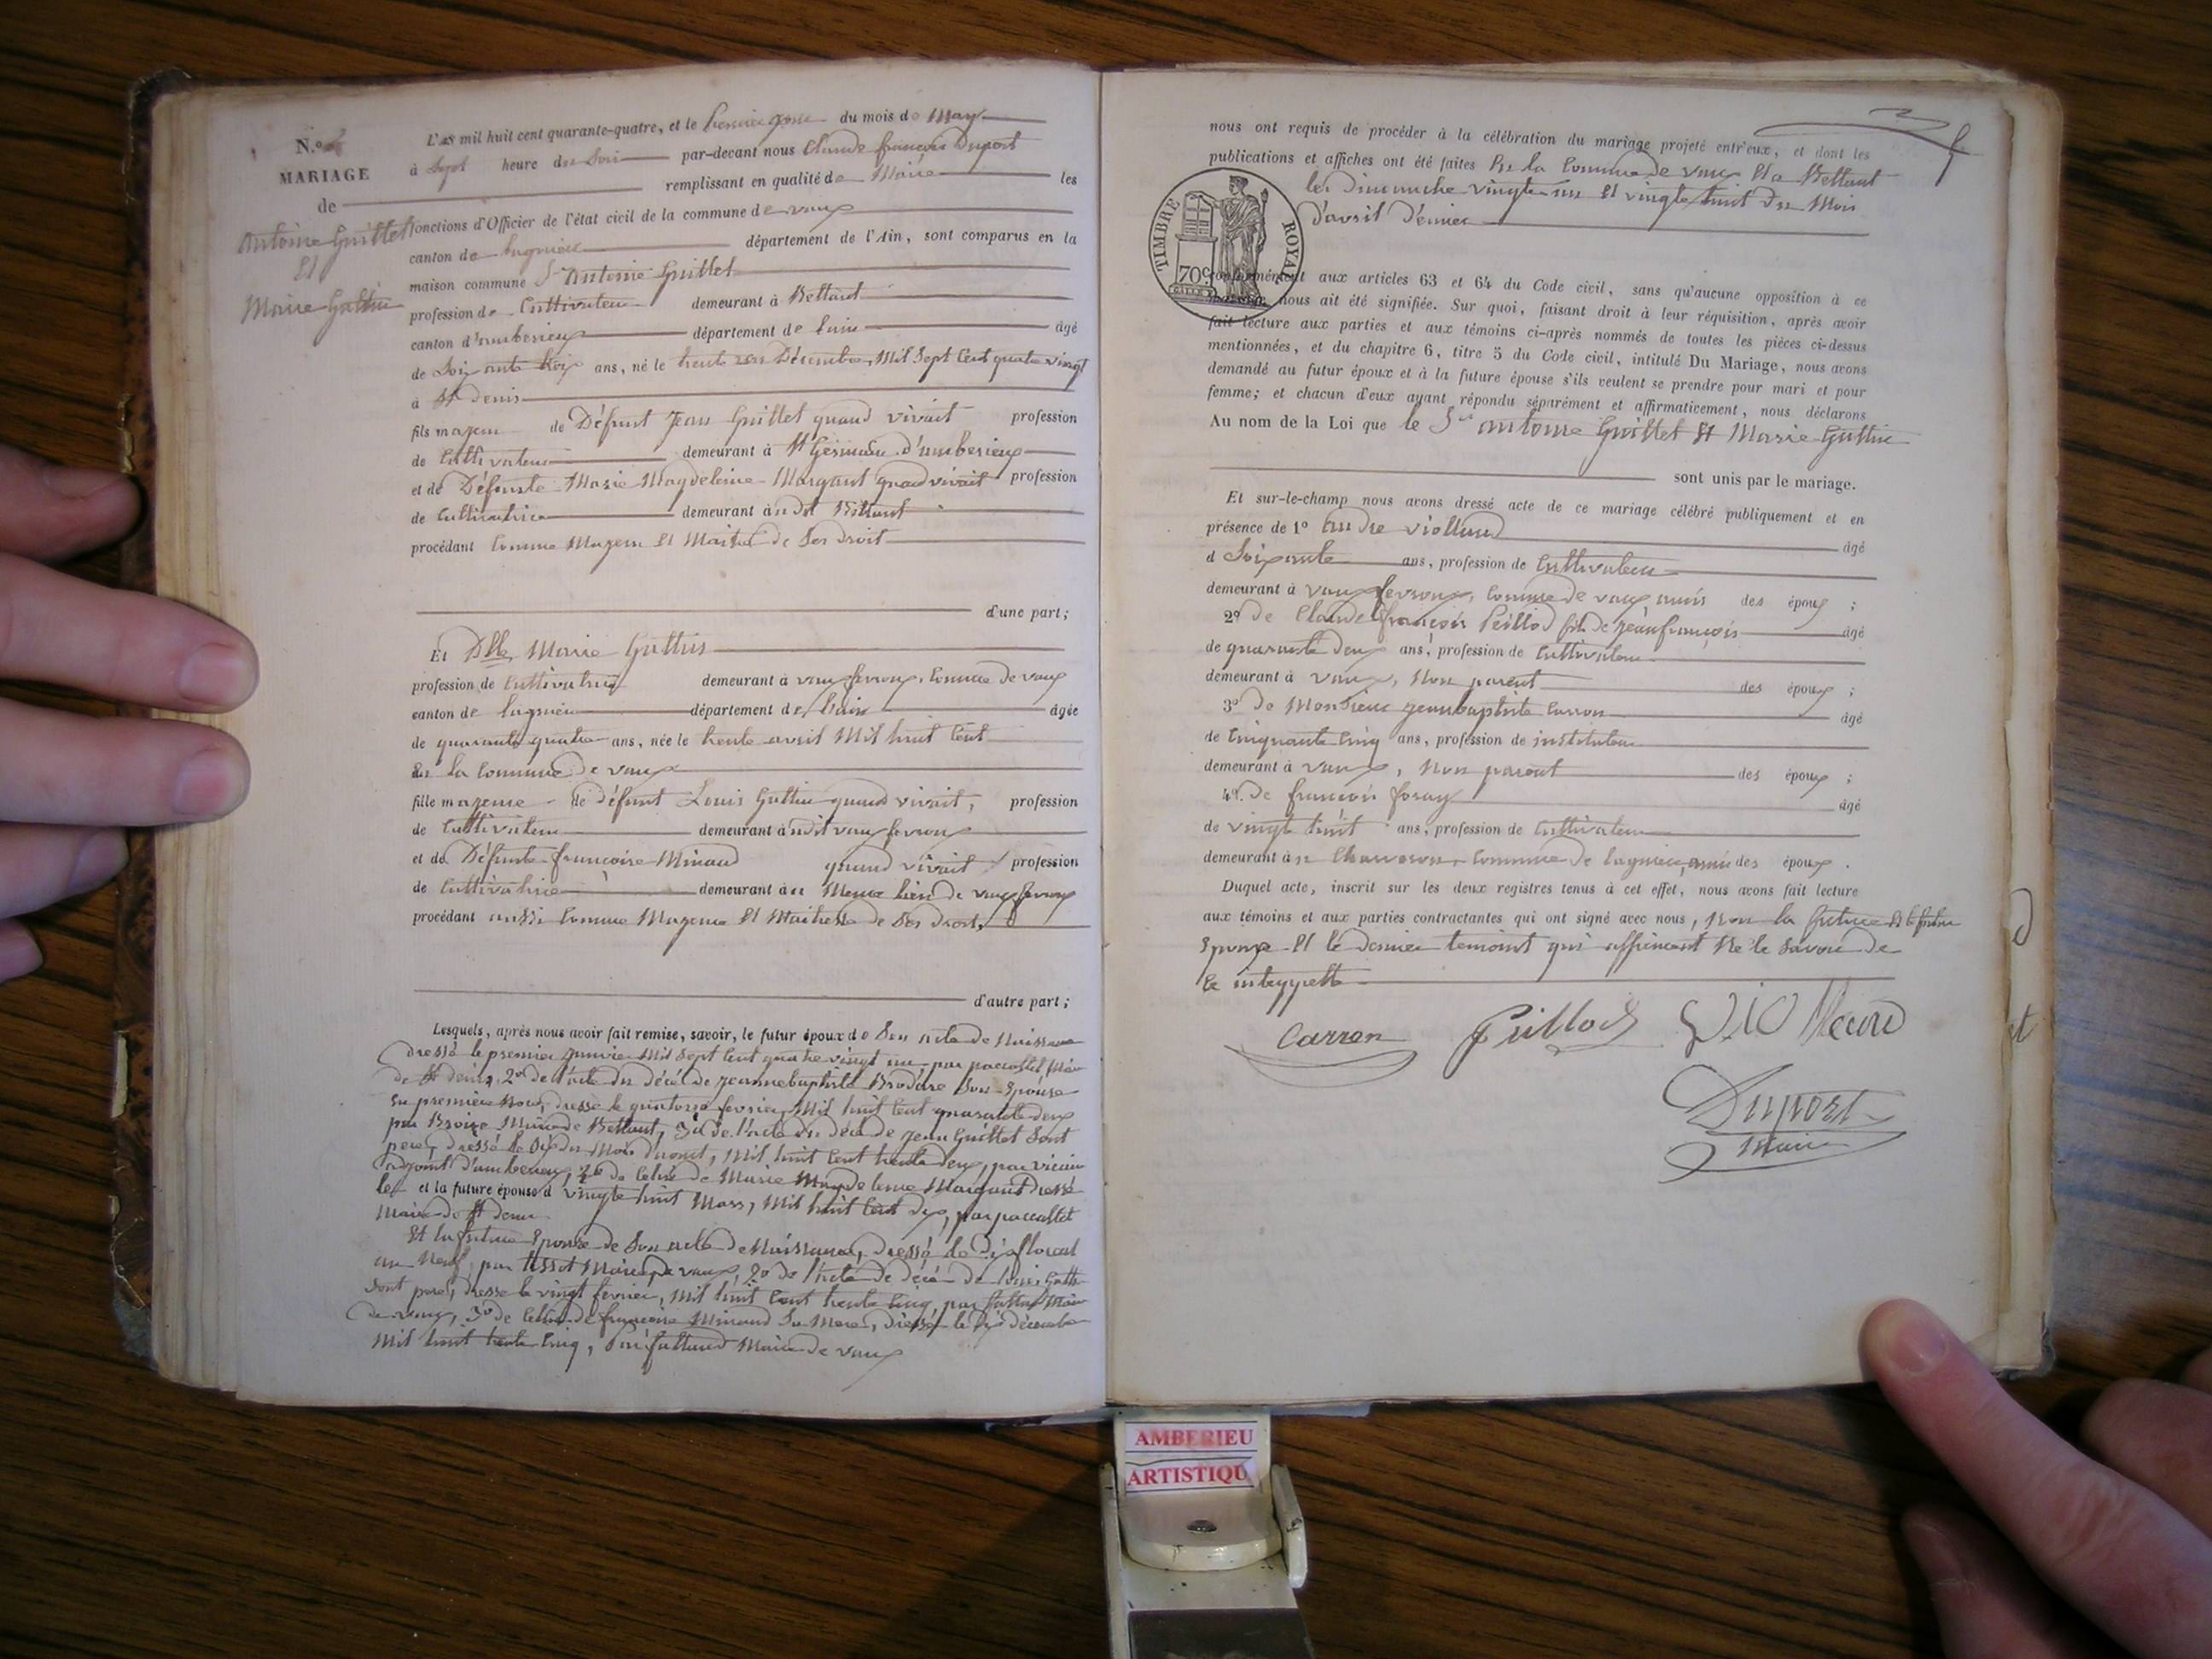 N.º
MARIAGE
de
Antoine Guillet
Et
Marie Guttin
L'an mil huit cent quarante-quatre, et le premier jour du mois de May
à Sept heure du Soir par-devant nous Claude françois Duport
remplissant en qualité de Maire les
fonctions d'Officier de l'état civil de la commune de vaux
canton de lagnieu département de l'Ain, sont comparus en la
maison commune Sr Antoine Guillet
profession de Cultivateur demeurant à Bettant
canton d'ambérieux département de lain âgé
de Soixante trois ans, né le trente un Décembre, Mil Sept Cent quatre vingt
à St denis
fils majeur de Défunt Jean Guillet quand vivait profession
de Cultivateur demeurant à St Germain d'amberieux
et de Défunte Marie Magdeleine Margant quand vivait profession
de Cultivatrice demeurant à udit Bettant
procédant Comme Majeur Et Maitre de Ses droit
d'une part;
Et Dlle Marie Guttin
profession de Cultivatrice demeurant à vaux fevroux, Commune de vaux
canton de lagnieu département de lain âgée
de quarante quatre ans, née le trente avril Mil huit Cent
En la Commune de vaux
fille majeure de défunt Louis Guttin quand vivait, profession
de Cultivateur demeurant à udit vaux fevroux
et de Défunte françoise Minaud quand vivait profession
de Cultivatrice demeurant à u Meme lieu de vaux fevroux
procédant aussi Comme Majeure Et Maitresse de Ses droit,
d'autre part;
Lesquels, après nous avoir fait remise, savoir, le futur époux de Son acte de Naissance
dressé le premier janvier Mil Sept Cent quatre vingt un, par paccallet Mair
de St denis, 2º de l'acte du décé de jeannebaptiste Brodare Son Epouse
En première Noce, dressé le quatorze fevrier, Mil huit Cent quarante deux
par Maire de Bettant, 3º de l'acte du décé de Jean Guillet Sont
pere, dressé le dix du Mois d'aout, Mil huit Cent trente deux, par
adjoint d'amberieux, 4º de Celui de Marie Magdeleine Margant dressé
le et la future épouse d vingte huit Mars, Mil huit Cent dix, par paccallet
Maire de St denis
Et la future Epouse de Son acte de Naissance, dressé le dix floreal
an Neuf, par tissot Maire de vaux, 2º de l'acte de décé de Louis Guttin
Sont pere, dressé le vingt fevrier, Mil huit Cent trente Cinq, par Maire
de vaux, 3º de Celui de françoise Minaud Sa Mere, dressé le dix décembre
Mil huit trente Cinq, par Maire de vaux
nous ont requis de procéder à la célébration du mariage projeté entr'eux, et dont les
publications et affiches ont été faites En la Commune de vaux Et a Bettant
les dimanche vingte un Et vingte huit du Mois
d'avril dernier
TIMBRE ROYAL
70c
conformément aux articles 63 et 64 du Code civil, sans qu'aucune opposition à ce
mariage nous ait été signifiée. Sur quoi, faisant droit à leur réquisition, après avoir
fait lecture aux parties et aux témoins ci-après nommés de toutes les pièces ci-dessus
mentionnées, et du chapitre 6, titre 5 du Code civil, intitulé Du Mariage, nous avons
demandé au futur époux et à la future épouse s'ils veulent se prendre pour mari et pour
femme; et chacun d'eux ayant répondu séparément et affirmativement, nous déclarons
Au nom de la Loi que le Sr antoine Guillet Et Marie Guttin
sont unis par le mariage.
Et sur-le-champ nous avons dressé acte de ce mariage célébré publiquement et en
présence de 1º andre viollaud âgé
d Soixante ans, profession de Cultivateur
demeurant à vaux fevroux, Commune de vaux amis des époux ;
2º de Claude françois Peillod fils de jeanfrançois âgé
de quarante deux ans, profession de Cultivateur
demeurant à vaux, Non parent des époux ;
3º de Monsieur jeanbaptiste Carron âgé
de Cinquante Cinq ans, profession de instituteur
demeurant à vaux, Non parent des époux ;
4º. de françois foray âgé
de vingt huit ans, profession de Cultivateur
demeurant à Commune de lagnieu, amis des époux .
Duquel acte, inscrit sur les deux registres tenus à cet effet, nous avons fait lecture
aux témoins et aux parties contractantes qui ont signé avec nous, non la future Et le futur
Epoux Et le dernier temoint qui affirment Ne le Savoir de
Ce
Carron Peillod
Duport
Maire
AMBERIEU
ARTISTIQU